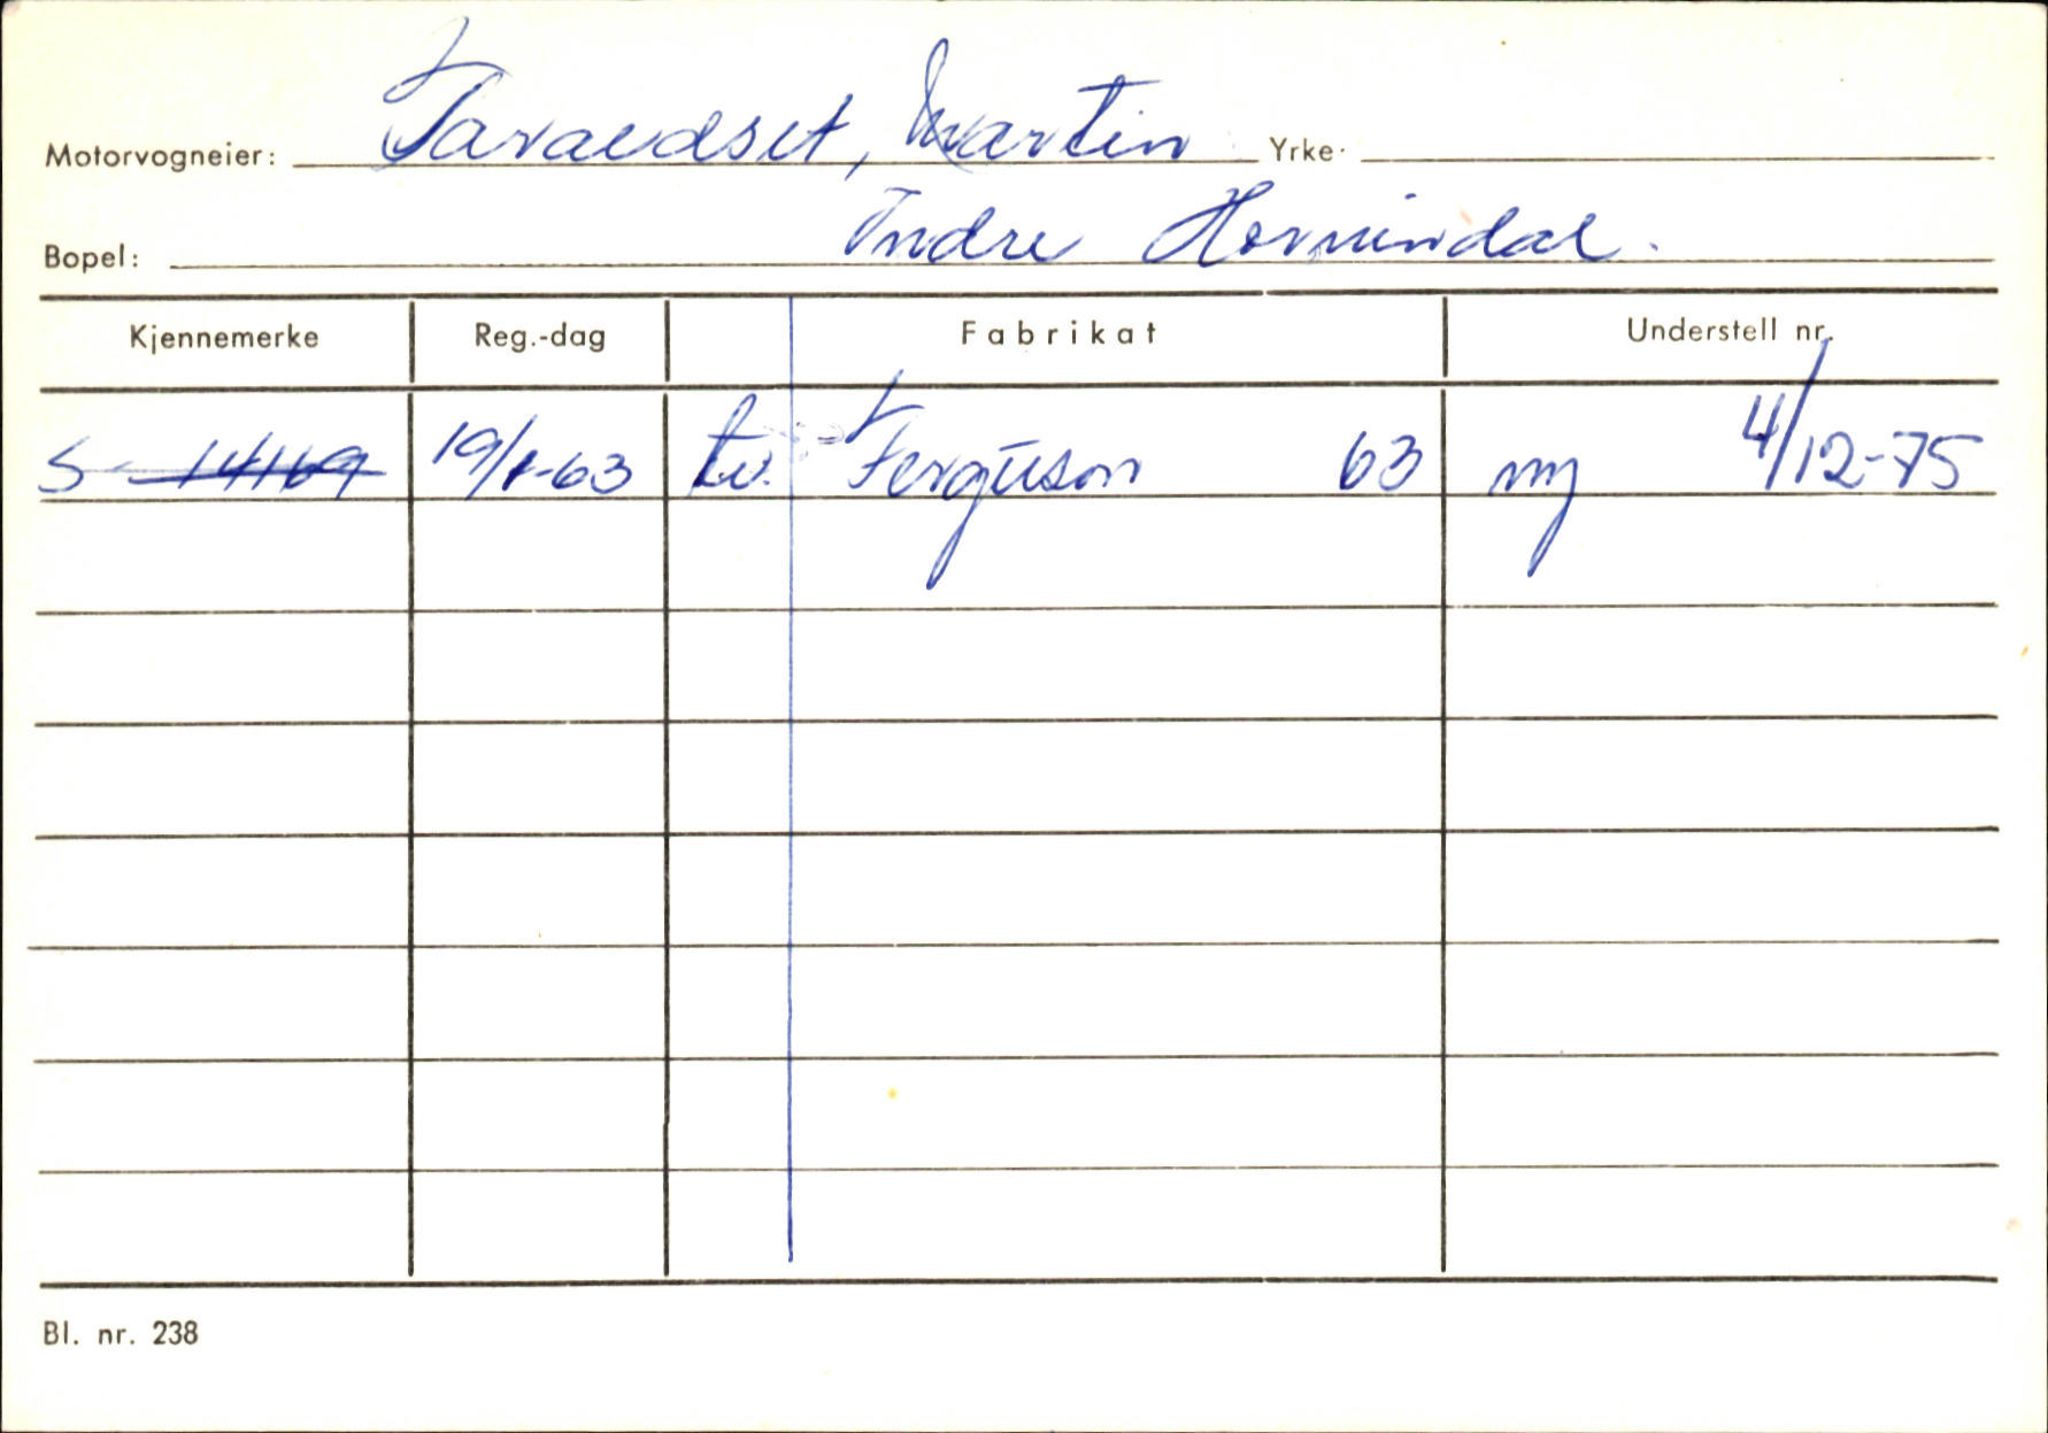 Motorvogneier: Taraldset, Martin Yrke:
Bopel: Indre Hornindal.
Kjennemerke Reg.-dag Fabrikat Understell nr.
S - 14169 19/1-63 tr. Ferguson 63 ny 4/12-75
Bl. nr. 238